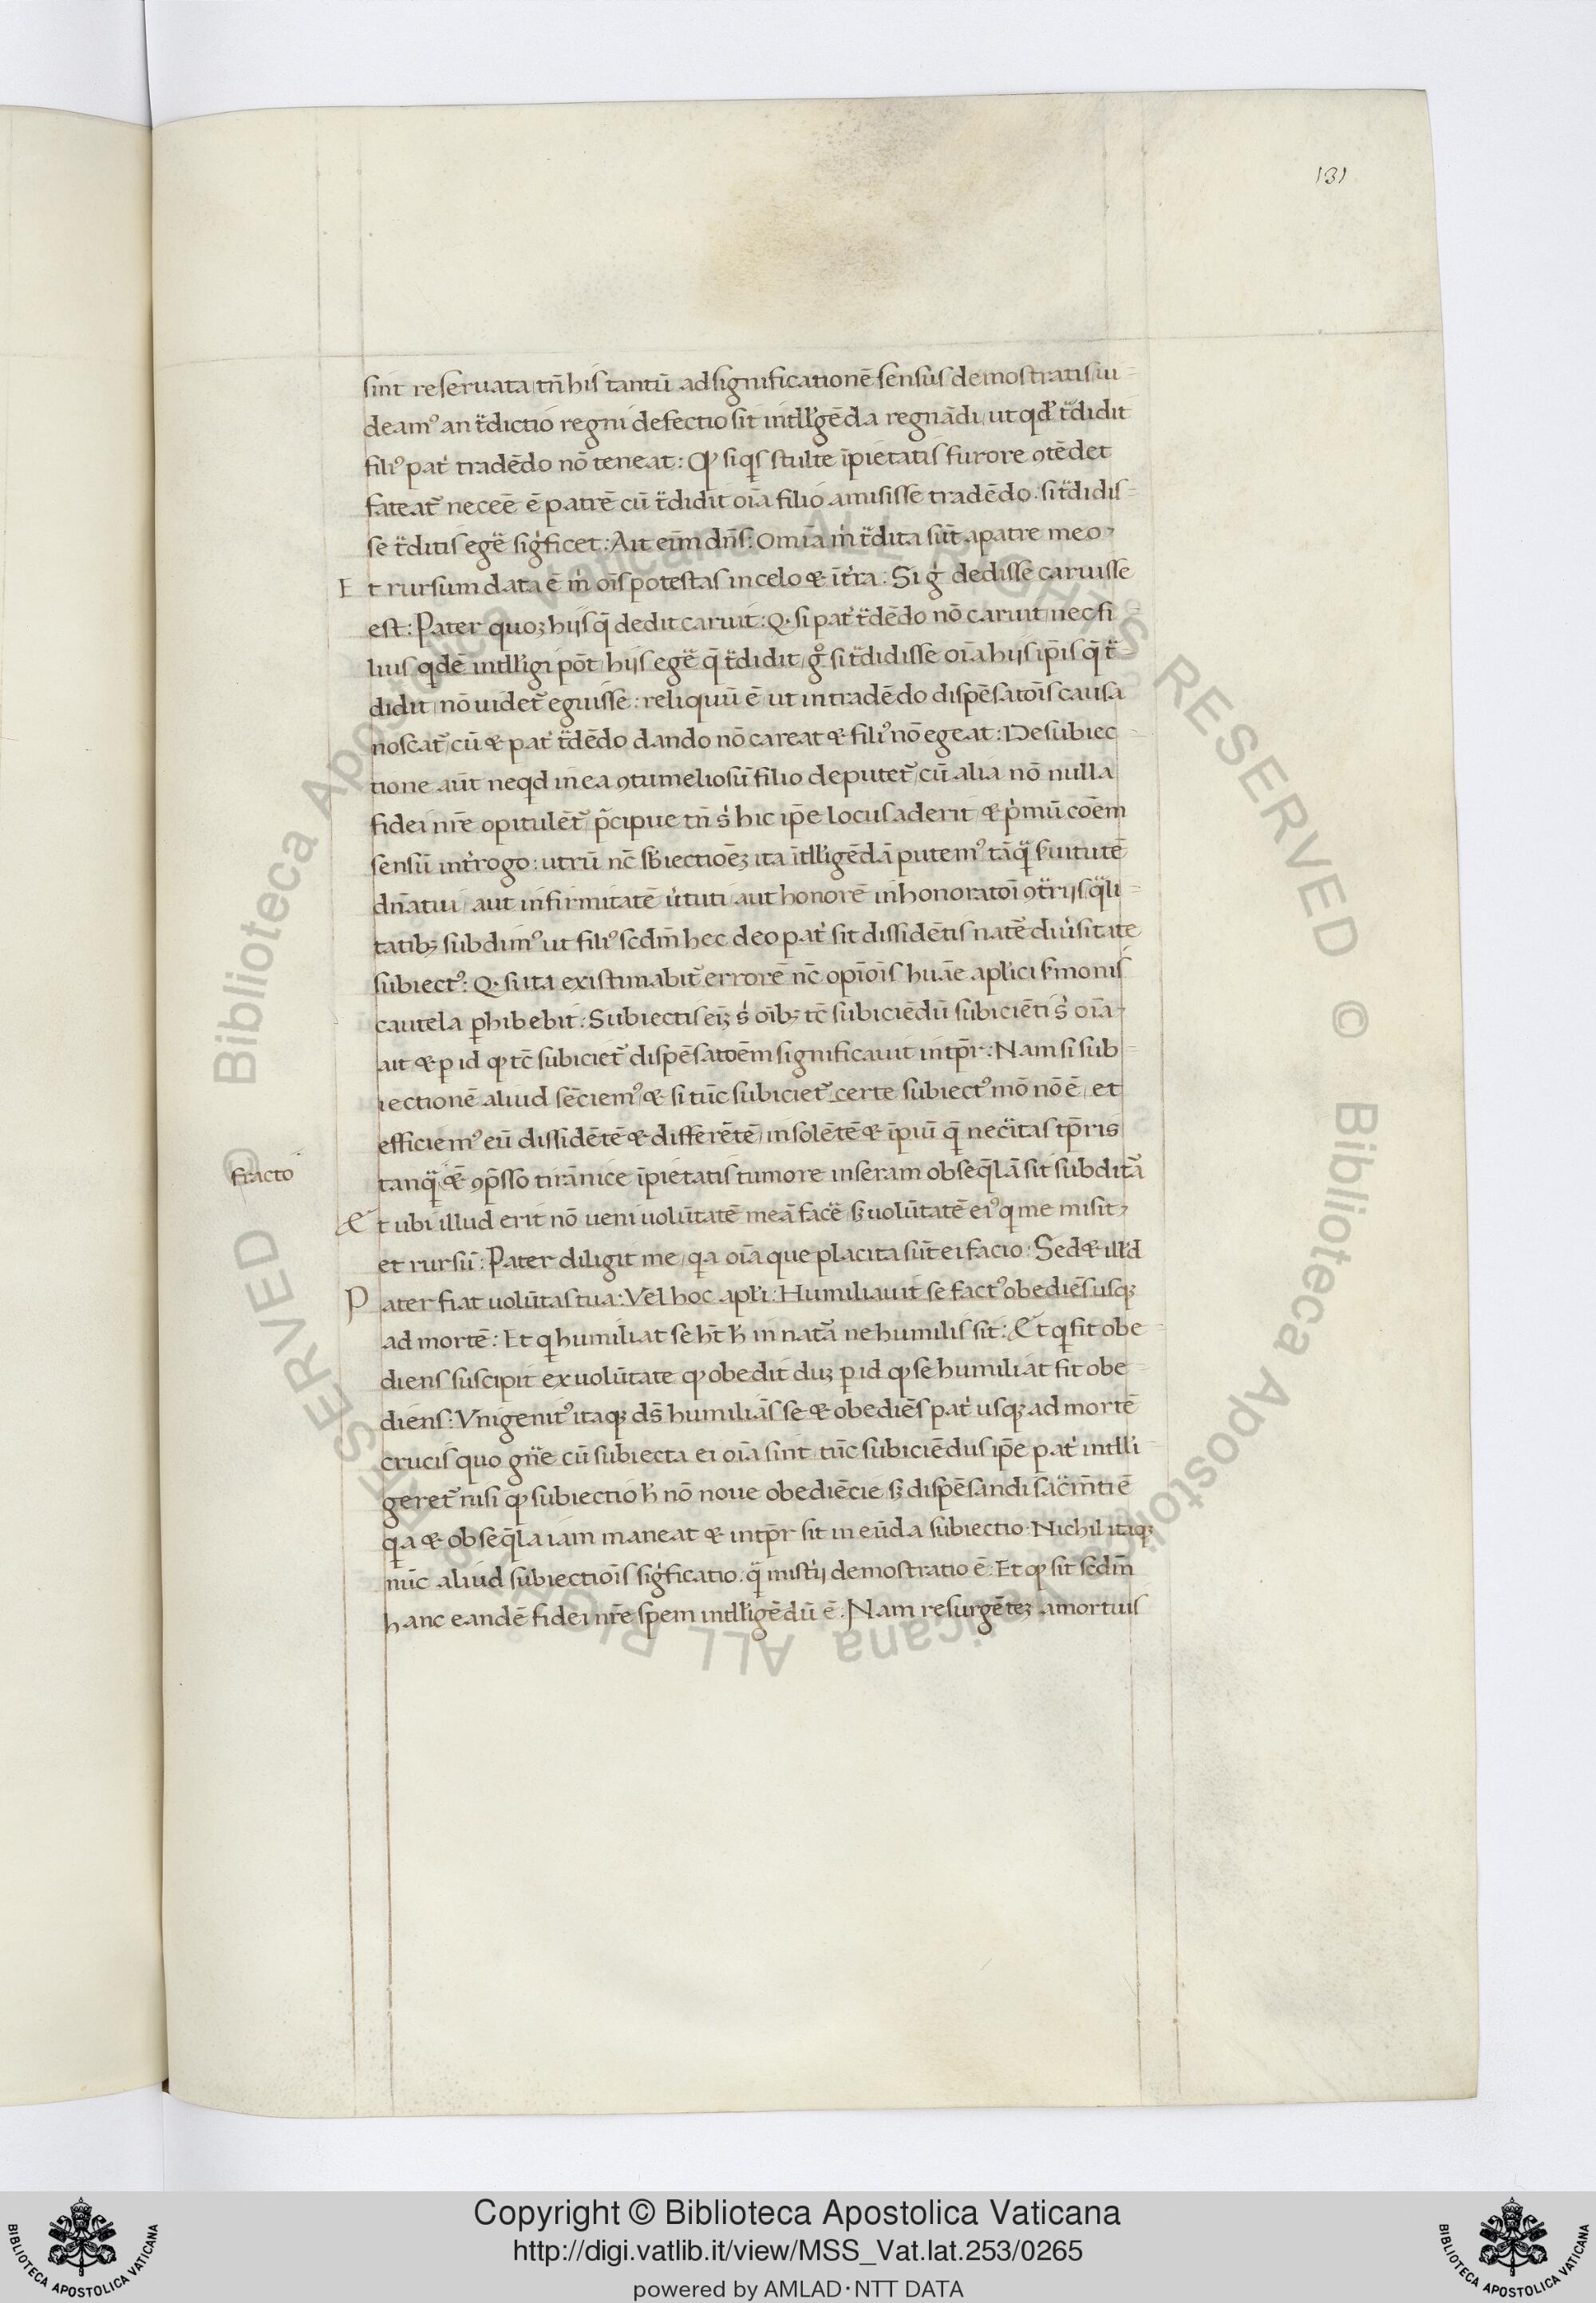 131
sint reseruata tn̄ his tantū ad significationē sensus demostratis ui=
deamꝰ an t̃dictio regni defectio sit intlľgēda regnādi ut qd̕ t̃didit
filiꝰ pat̕ tradēdo nō teneat: Qp si qs stulte īpietatis furore ꝯtēdet
fateat᷑ neceē ē patrē cū t̃didit oīa filio amisisse tradēdo. si t̃didis=
se t̃ditis egẽ sig̕ficet: Ait eīm dn̄s: Omīa m̕ t̃dita sūt a patre meo
Et rursum data ē m̕ oīs potestas in celo & īt̕ra: Si g̕ dedisse caruisse
est: Pater quoꝫ hijs q̄ dedit caruit: Q. si pat̕ t̃dēdo nō caruit nec fi=
lius qdē intlľigi pōt hijs egẽ q̄ t̃didit, gͦ si t̃didisse oīa hijs ip̄is q̄ t̃=
didit nō uidet᷑ eguisse: reliquū ē ut in tradēdo dispēsatōis causa
noscat᷑ cū & pat̕ t̃dēdo dando nō careat & filiꝰ nō egeat: De subiec=
tione aūt neqd in ea ꝯtumeliosū filio deputet᷑ cū alia nō nulla
fidei nr̄e opitulēt᷑ p̃cipue tn̄ s̕ hic ip̄e locus aderit & p̕mū cōem
sensū int̕rogo: utrū nc̄ sb̕iectiōeꝫ ita ītlľigēdā putemꝰ tāq̃ s̕uitutē
dn̄atui aut infirmitatē u̕tuti aut honorē inhonoratoī ꝯt̃rijs q̃li=
tatibꝫ subdimꝰ ut filiꝰ scdm̄ hec deo pat̕ sit dissidētis nat᷑e diu̕sitate
subiectꝰ: Q. si ita existimabit᷑ errorē nc̄ opīoīs huāe aplici s̕monis
cautela ꝑhibebit: Subiectis eīꝫ s̕ oībꝫ tc̄ subiciēdū subiciēti s̕ oīa
ait & ꝑ id qp tc̄ subiciet᷑ dispēsatoēm significauit intp̄r: Nam si sub=
iectionē aliud sēciemꝰ & si tūc subiciet᷑ certe subiectꝰ mō nō ē et
efficiemꝰ eū dissidētē & differētē insolētē & īpiū q̄ nec̃itas tp̄ris
fracto
tanq̃ & ꝯp̄sso tirānice īpietatis tumore in seram obseq̄lā sit subdit᷑a
Et ubi illud erit nō ueni uolūtatē meā facẽ sꝫ uolūtatē eiꝰ q me misit
et rursū: Pater diligit me qa oīa que placita sūt ei facio: Sed & ill̕d
Pater fiat uolūtas tua: Vel hoc apľi: Humiliauit se factꝰ obediēs usqꝫ
ad mortē: Et q humiliat se ht̄ h̕ in nat᷑a ne humilis sit: Et q fit obe=
diens suscipit ex uolūtate qp obedit duꝫ ꝑ id qp se humiliat fit obe=
diens: Vnigenitꝰ itaqꝫ ds̄ humiliās se & obediēs pat̕ usqꝫ ad mortē
crucis quo gñe cū subiecta ei oīa sint tūc subiciēdus ip̄e pat̕ intlľi=
geret᷑ nisi qp subiectio h̕ nō noue obediēcie sꝫ dispēsandi sac̃m̄ti ē
qa & obseq̄la iam maneat & intp̄r sit in eūda subiectio: Nichil itaqꝫ
nūc aliud subiectiōis sig̕ficatio. q̃ mist̕ij demostratio ē. Et qp sit scdm̄
hanc eandē fidei nr̄e spem intlľigēdū ē. Nam resurgēteꝫ a mortuis
Copyright © Biblioteca Apostolica Vaticana
http://digi.vatlib.it/view/MSS_Vat.lat.253/0265
powered by AMLAD·NTT DATA